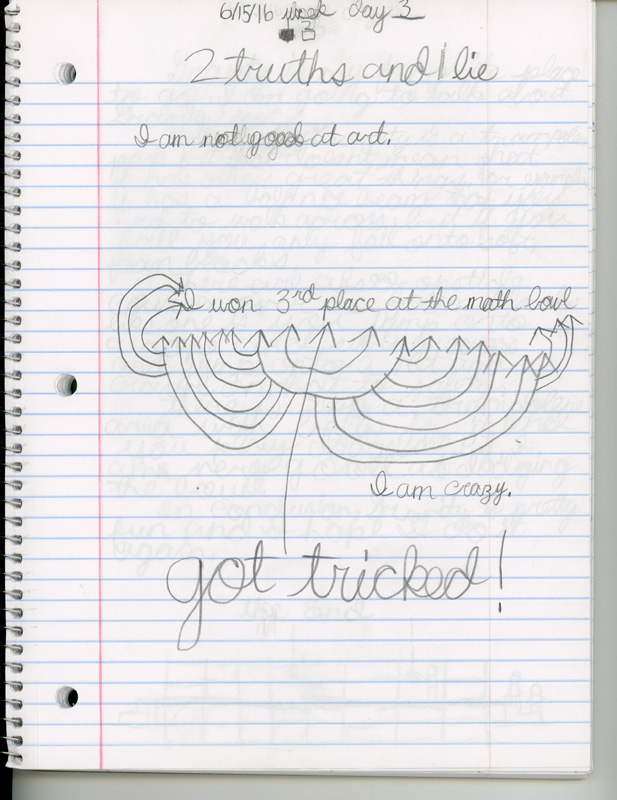 6/15/16 week day 3
3
2 truths and 1 lie
I am not good at art.
I won 3rd place at the math bowl
I am crazy.
got tricked!